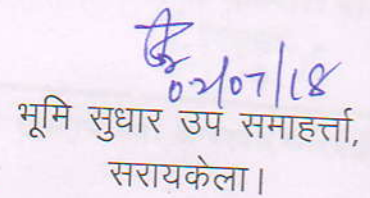 02/07/18
भूमि सुधार उप समाहर्त्ता,
सरायकेला।